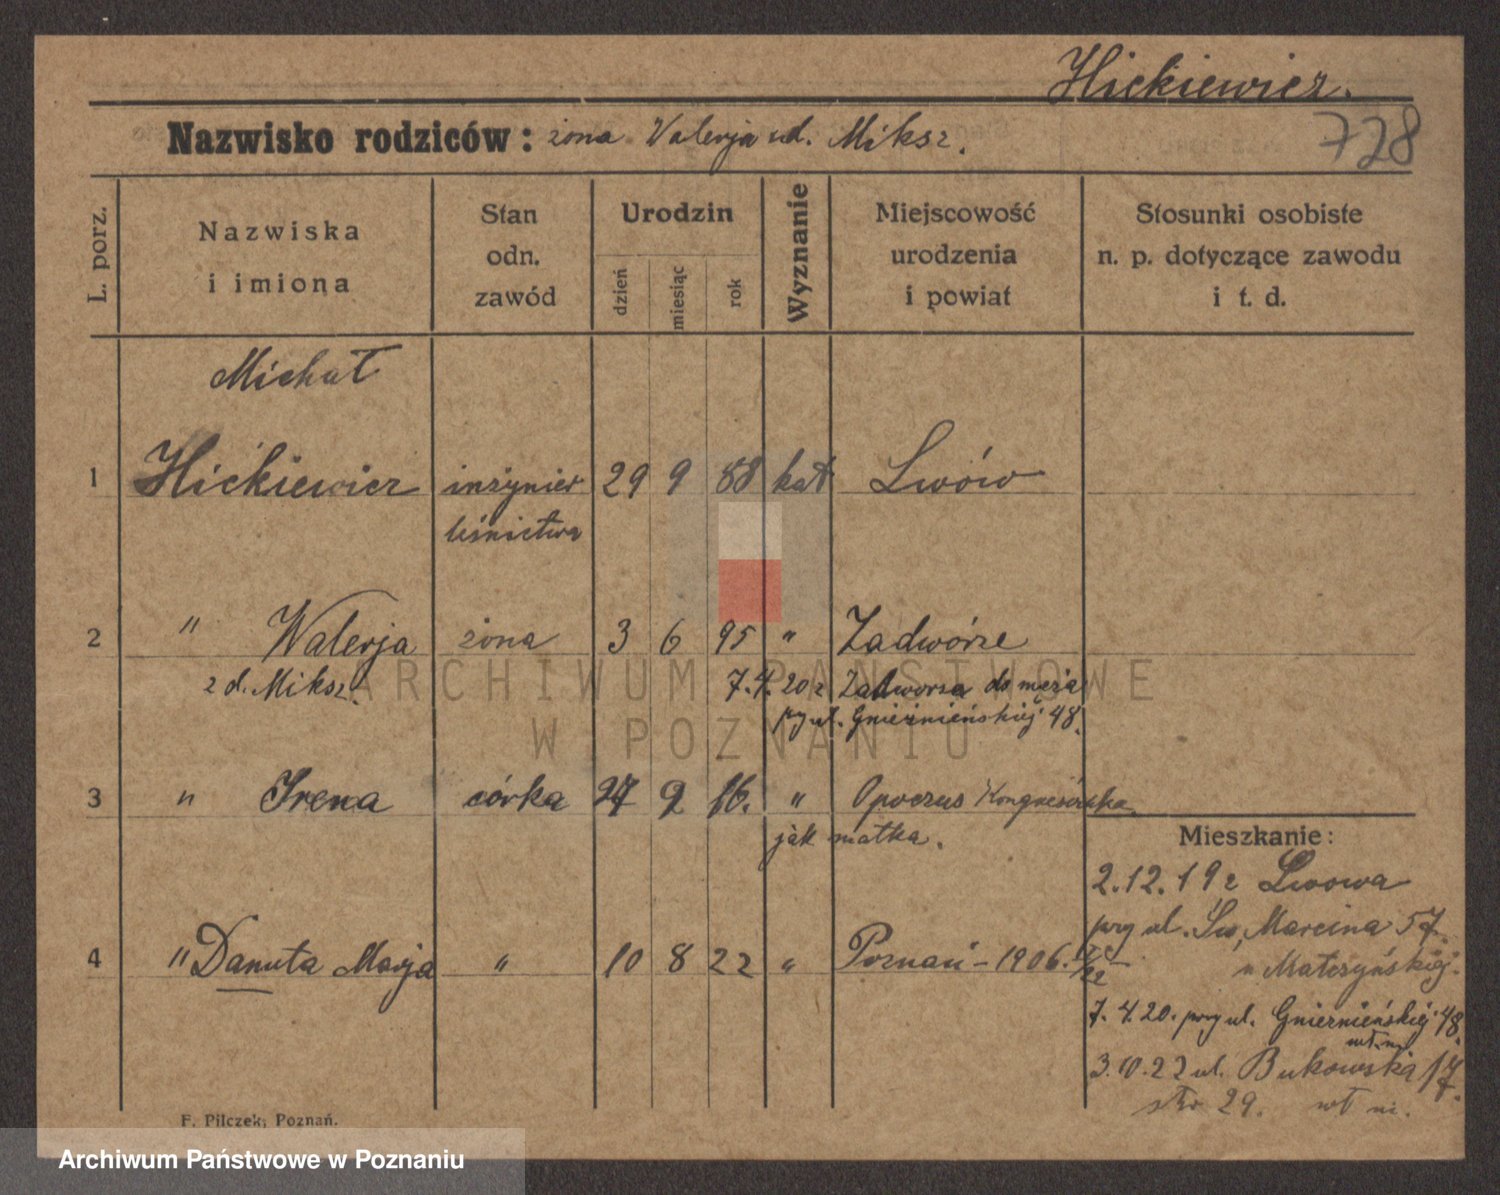 Hickiewicz.
Nazwisko rodziców: żona Valerja ud. Miksz.
728
L. porz.
Nazwiska i imiona
Stan odn. zawód
Urodzin
dzień miesiąc rok
Wyznanie
Miejscowość urodzenia i powiat
Stosunki osobiste n. p. dotyczące zawodu i t. d.
Michał
1 Hickiewicz inżynier 29 9 88 kat Lwów
leśnictwa
2 " Walerja żona 3 6 95 " Zadwórze
z d. Miksz. 7.4.20 z Zadworza do męża
przy ul. Gnieźnieńskiej 48.
3 " Irena córka 27 9 16. " Opoczus Kongresówka
jak matka.
Mieszkanie:
2.12.19 z Lwowa
przy ul. Św. Marcina 57.
4 " Danuta Marja " 10 8 22 " Poznań - 1906.
u Matczyńskiej.
7. 4. 20. przy ul. Gnieźnieńskiej 48.
3.10.22 ul. Bukowska 17.
29. wł m.
F. Pilczek, Poznań.
ARCHIWUM PAŃSTWOWE
W POZNANIU
Archiwum Państwowe w Poznaniu